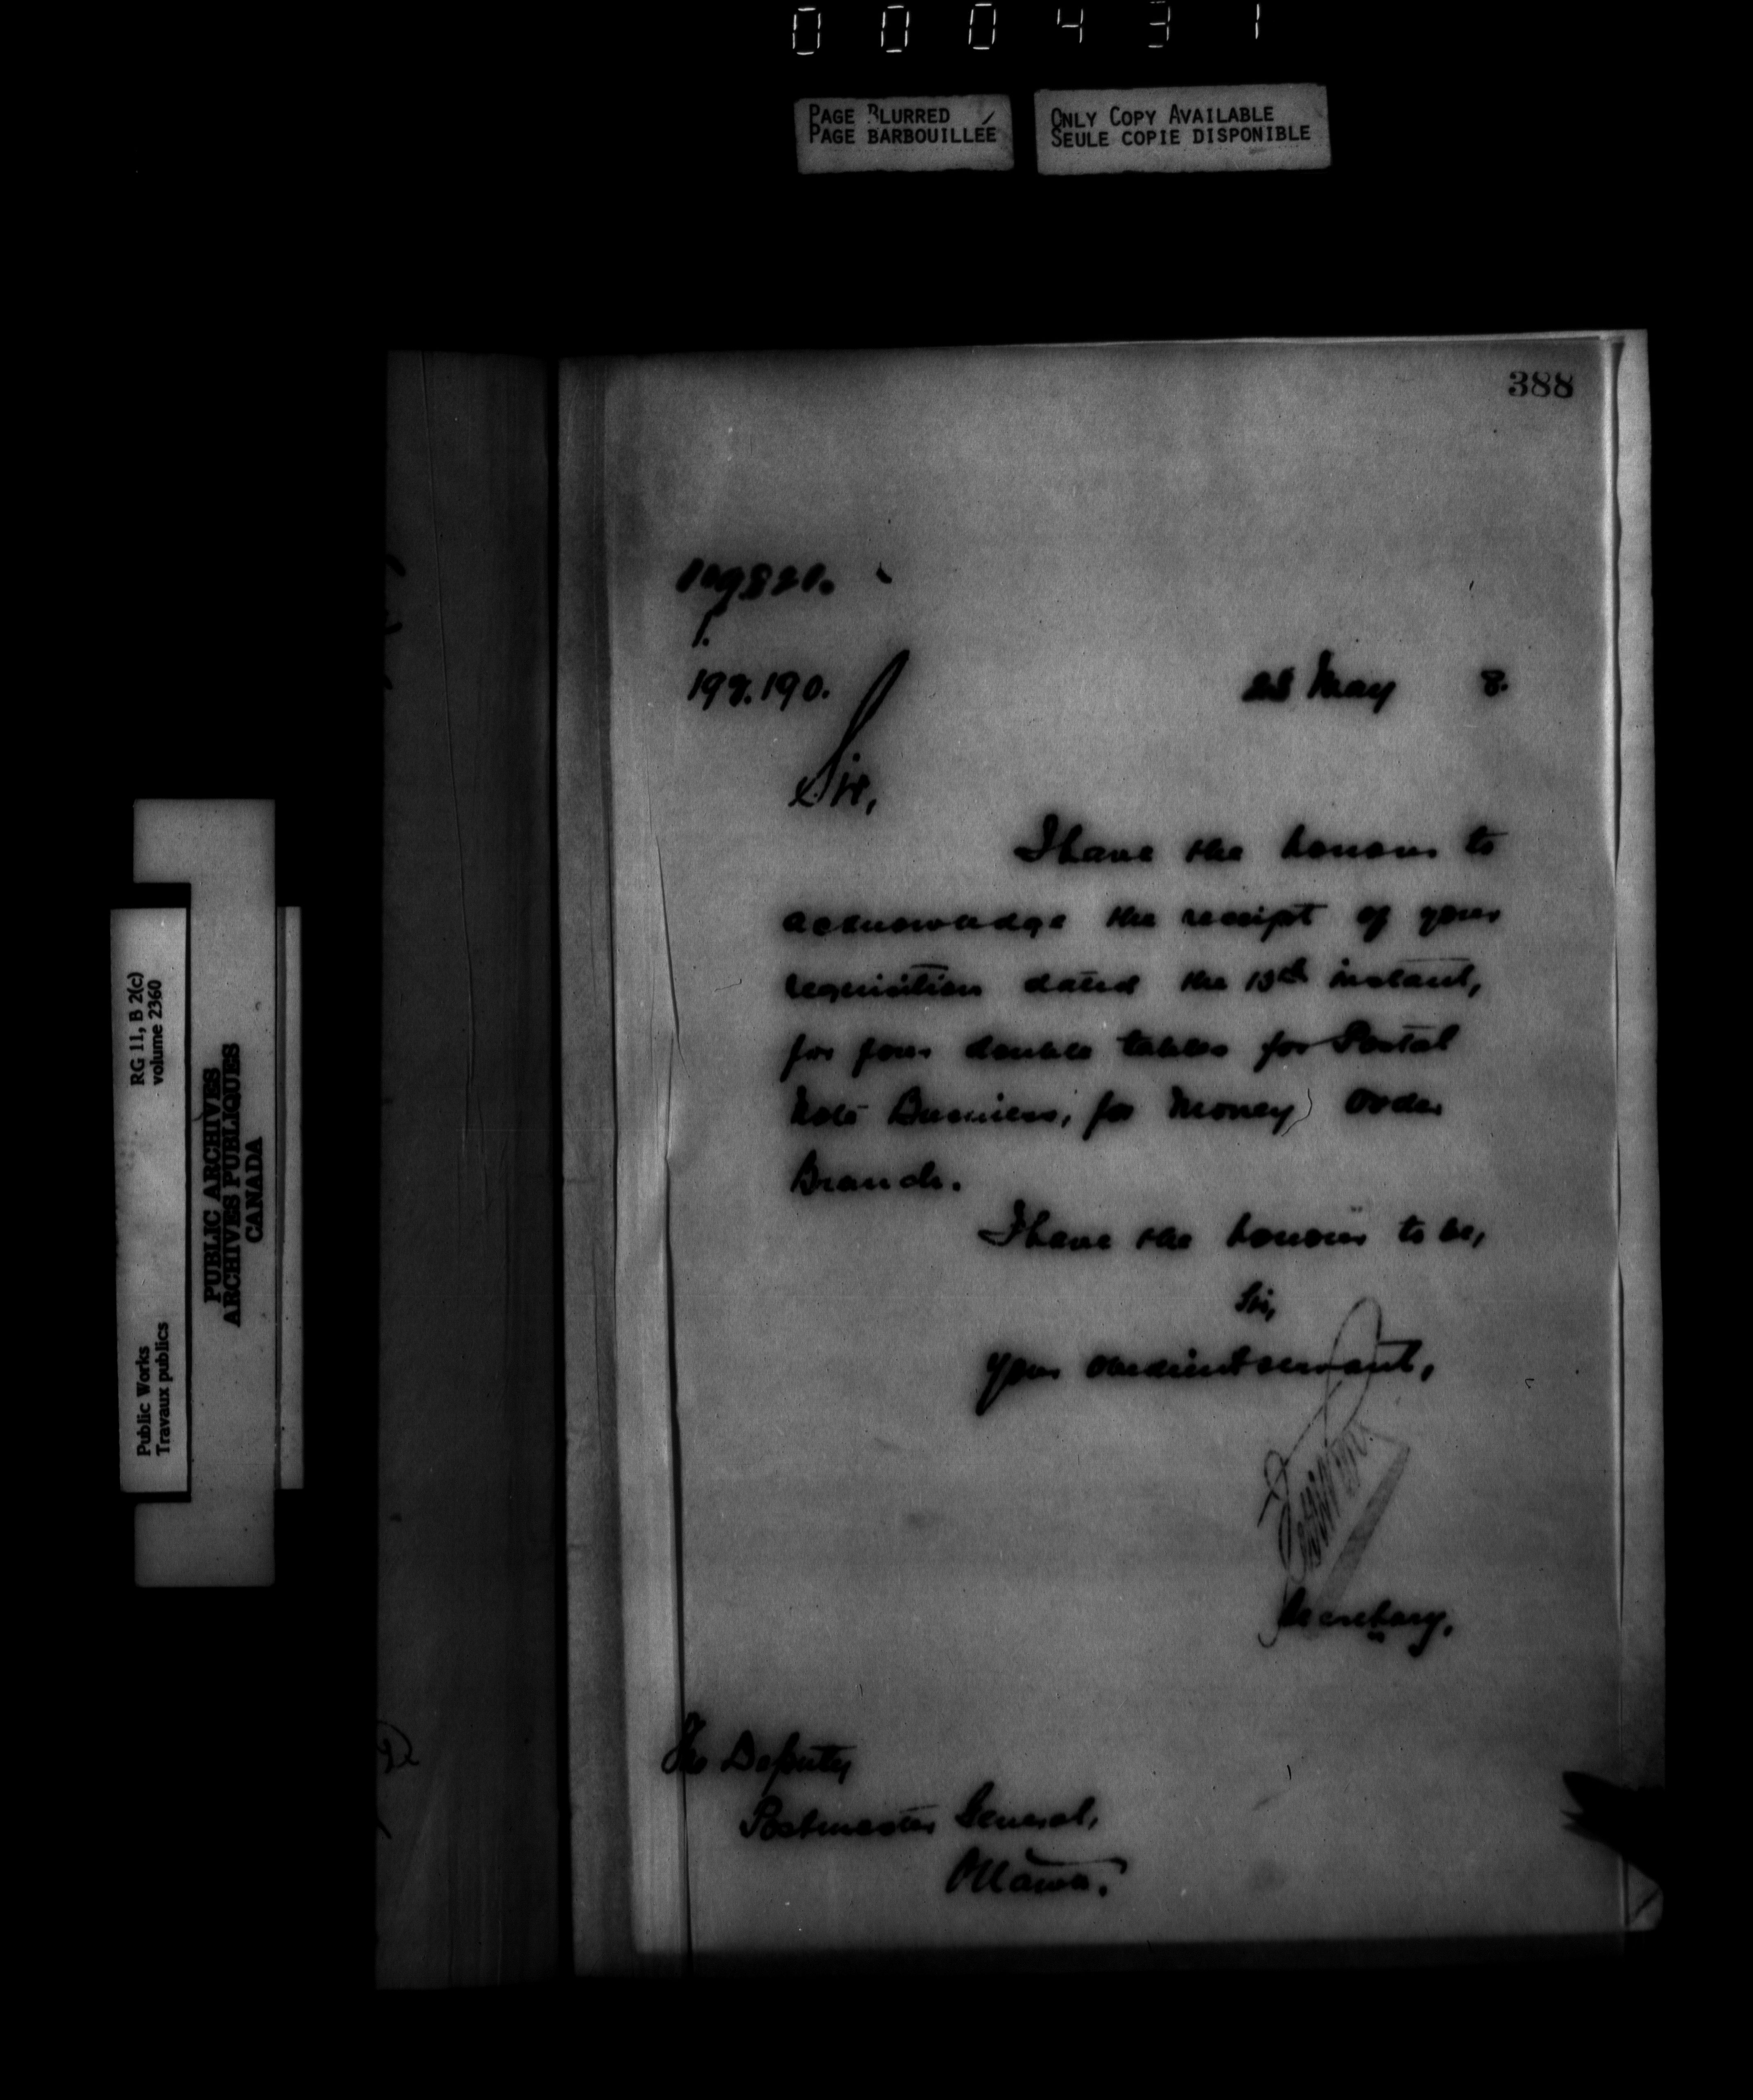 000431
PAGE BLURRED
PAGE BARBOUILLÉE
ONLY COPY AVAILABLE
SEULE COPIE DISPONIBLE
388
198.190.
May 8.
Sir,
I have the honour to
acknowledge the receipt of your
requisition dated the 13th instant,
for four double tables for Postal
Note Business, for Money Order
Branch.
I have the honour to be,
Sir,
Your obedient servant,
Secretary.
The Deputy
Postmaster General,
Ottawa.
RG 11, B 2(c)
volume 2360
Public Works
Travaux publics
PUBLIC ARCHIVES
ARCHIVES PUBLIQUES
CANADA